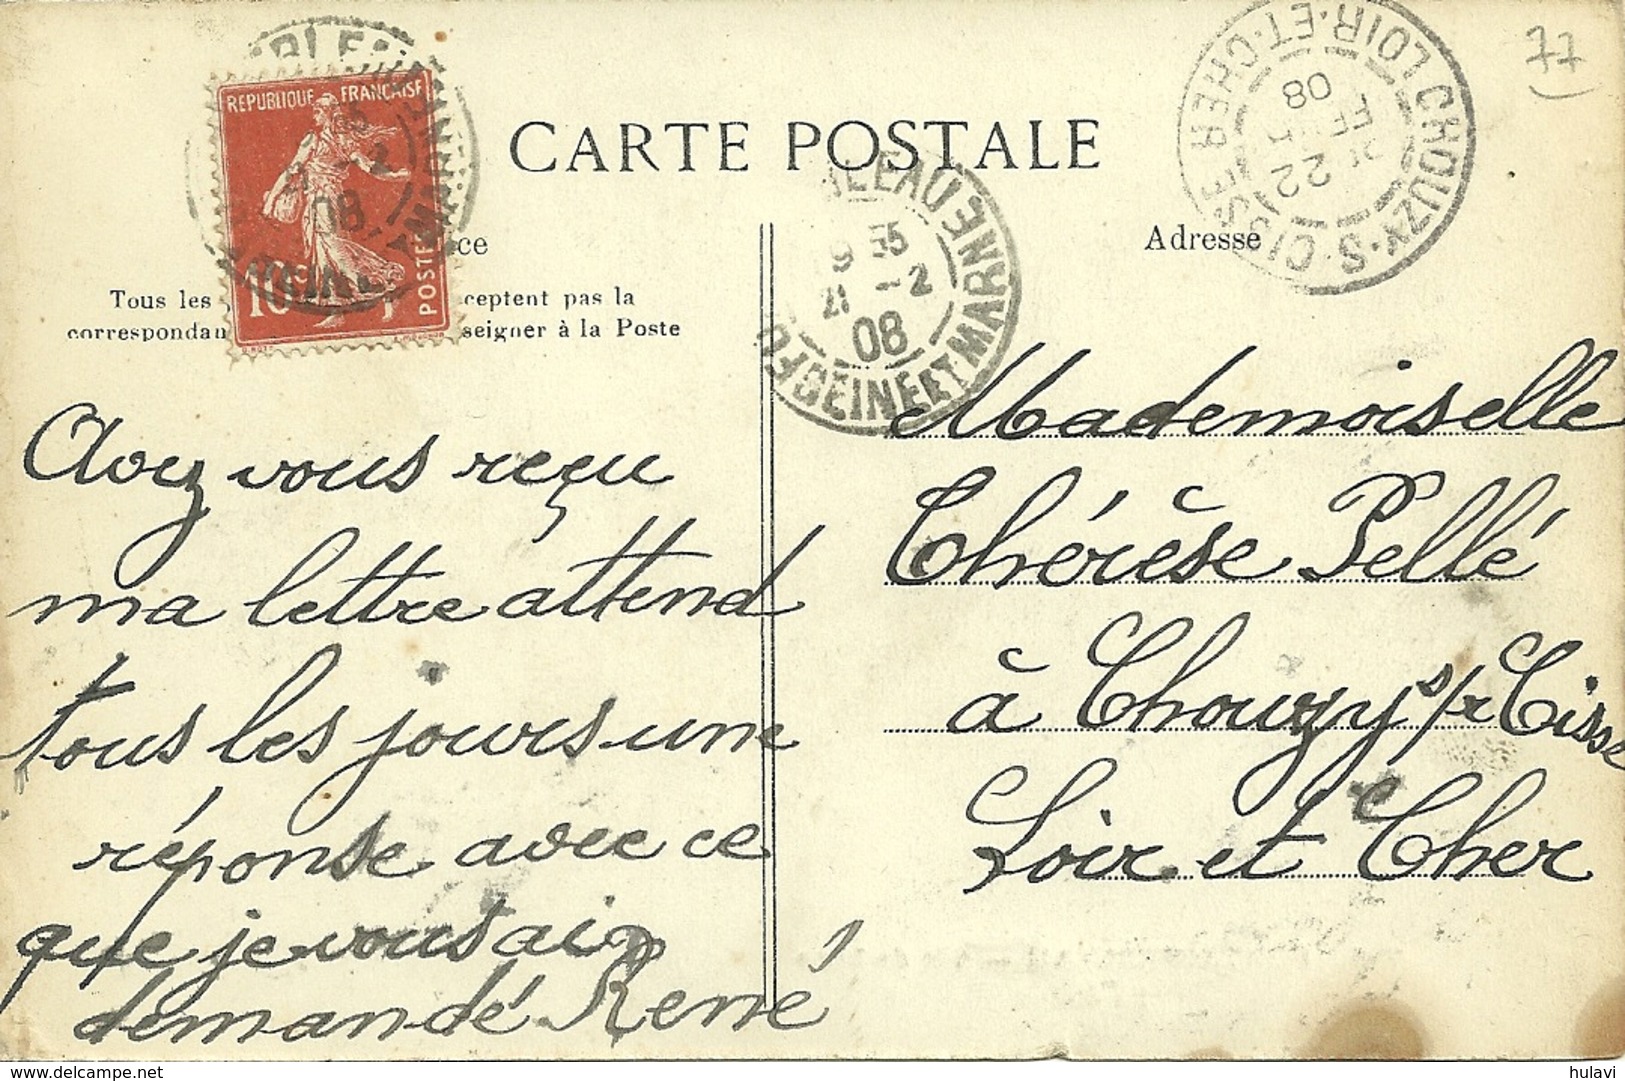 77
CARTE POSTALE
REPUBLIQUE FRANÇAISE
POSTES
10c
Adresse
Tous les
ceptent pas la
correspondan
seigner à la Poste
5
21 -2
08
SEINE ET MARNE
CHOUZY-S-CISSE
LOIR-ET-CHER
22
FEVR
08
Avez vous reçu
ma lettre attend
tous les jours une
réponse avec ce
que je vous ai
demandé René
Mademoiselle
Thérèse Pellé
à Chouzy s/r Cisse
Loir et Cher
hulavi
www.delcampe.net